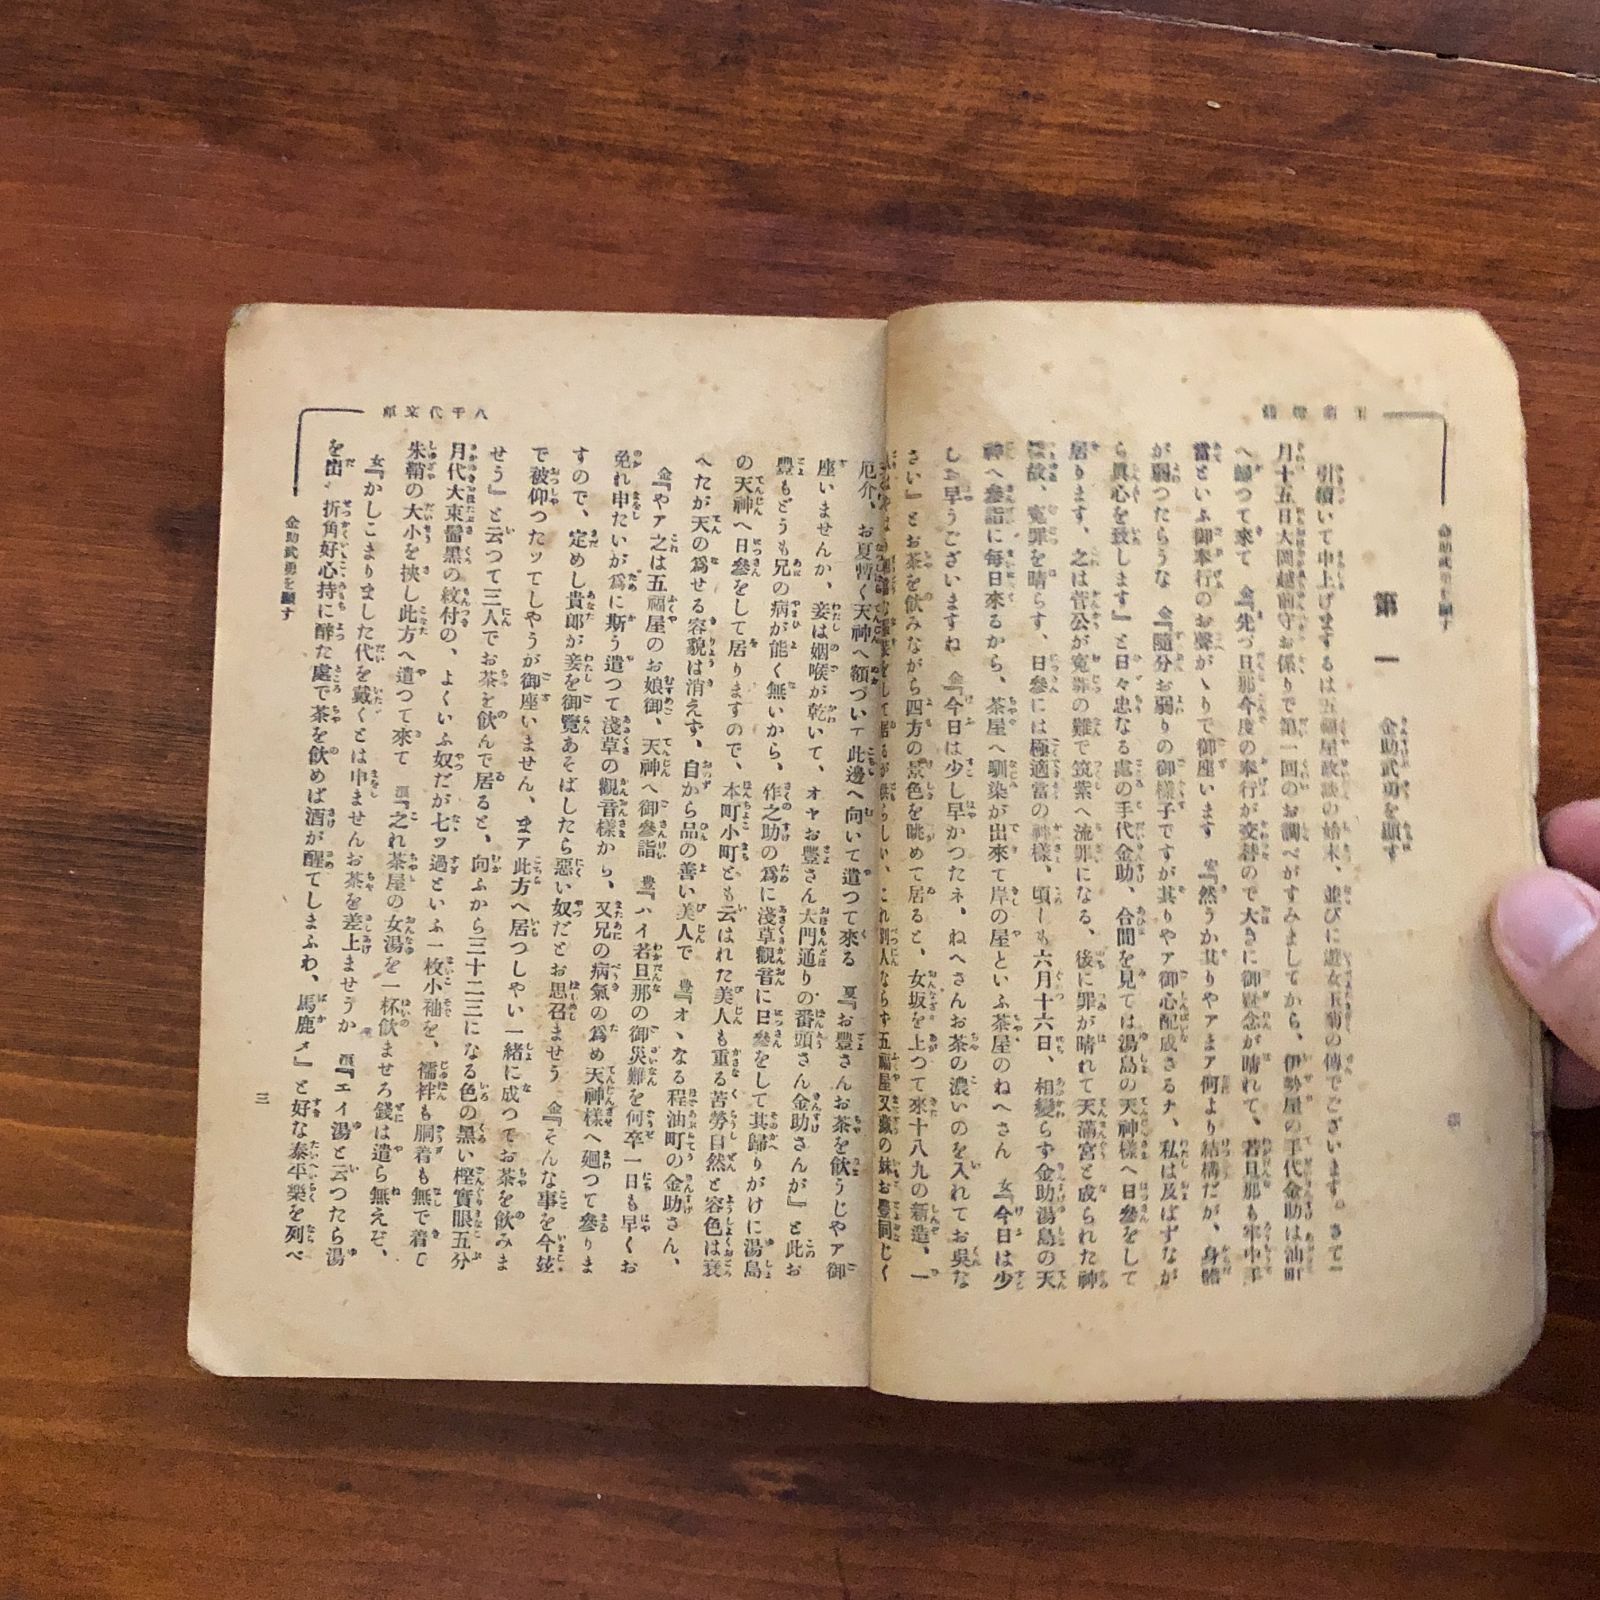 金助武勇を顯す
第一　金助武勇を顯す
引續いて申上げまするは五福屋政談の始末、並びに遊女玉菊の傳でございます。さて一
月十五日大岡越前守お係りで第一回のお調べがすみましてから、伊勢屋の手代金助は油町
へ歸つて來て　金『先づ旦那今度の奉行が交替ので大きに御疑念が晴れて、若旦那も牢中手
當といふ御奉行のお聲がゝりで御座います　安『然うか其りやアまア何より結構だが、身體
が弱つたらうな　金『隨分お弱りの御樣子ですが其りやア御心配成さるナ、私は及ばずなが
ら眞心を致します』と日々忠なる處の手代金助、合間を見ては湯島の天神樣へ日參をして
居ります、之は菅公が寃罪の難で筑紫へ流罪になる、後に罪が晴れて天滿宮と成られた神
故、寃罪を晴らす、日參には極適當の神樣、頃しも六月十六日、相變らず金助湯島の天
神へ參詣に毎日來るから、茶屋へ馴染が出來て岸の屋といふ茶屋のねへさん　女『今日は少
し早うございますね　金『今日は少し早かつたネ、ねへさんお茶の濃いのを入れてお呉な
さい』とお茶を飮みながら四方の景色を眺めて居ると、女坂を上つて來十八九の新造、一
をして居るが供らしい、これ別人ならず五福屋又藏の妹お豐同じく
八千代文庫
厄介、お夏暫く天神へ額づいて此邊へ向いて遣つて來る　夏『お豐さんお茶を飮うじやア御
座いませんか、妾は姻喉が乾いて、オヤお豐さん大門通りの番頭さん金助さんが』と此お
豐もどうも兄の病が能く無いから、作之助の爲に淺草觀音に日參をして其歸りがけに湯島
の天神へ日參をして居りますので、本町小町とも云はれた美人も重る苦勞自然と容色は衰
へたが天の爲せる容貌は消えず、自から品の善い美人で　豊『オヽなる程油町の金助さん、
金『やア之は五福屋のお娘御、天神へ御參詣　豊『ハイ若旦那の御災難を何卒一日も早くお
免れ申たいが爲に斯う遣つて淺草の觀音樣から、又兄の病氣の爲め天神樣へ廻つて參りま
すので、定めし貴郎が妾を御覽あそばしたら惡い奴だとお思召ませう　金『そんな事を今玆
で被仰つたッてしやうが御座いません、まア此方へ居つしやい一緒に成つてお茶を飮みま
せう』と云つて三人でお茶を飮んで居ると、向ふから三十二三になる色の黑い樫實眼五分
月代大束髷黑の紋付の、よくいふ奴だが七ッ過といふ一枚小袖を、襦袢も胴着も無で着て
朱鞘の大小を挾し此方へ遣つて來て　酒『之れ茶屋の女湯を一杯飮ませろ錢は遣ら無えぞ、
女『かしこまりました代を戴くとは申ませんお茶を差上ませうか　酒『エイ湯と云つたら湯
を出せ折角好心持に醉た處で茶を飮めば酒が醒てしまふわ、馬鹿メ』と好な泰平樂を列べ
金助武勇を顯す
三